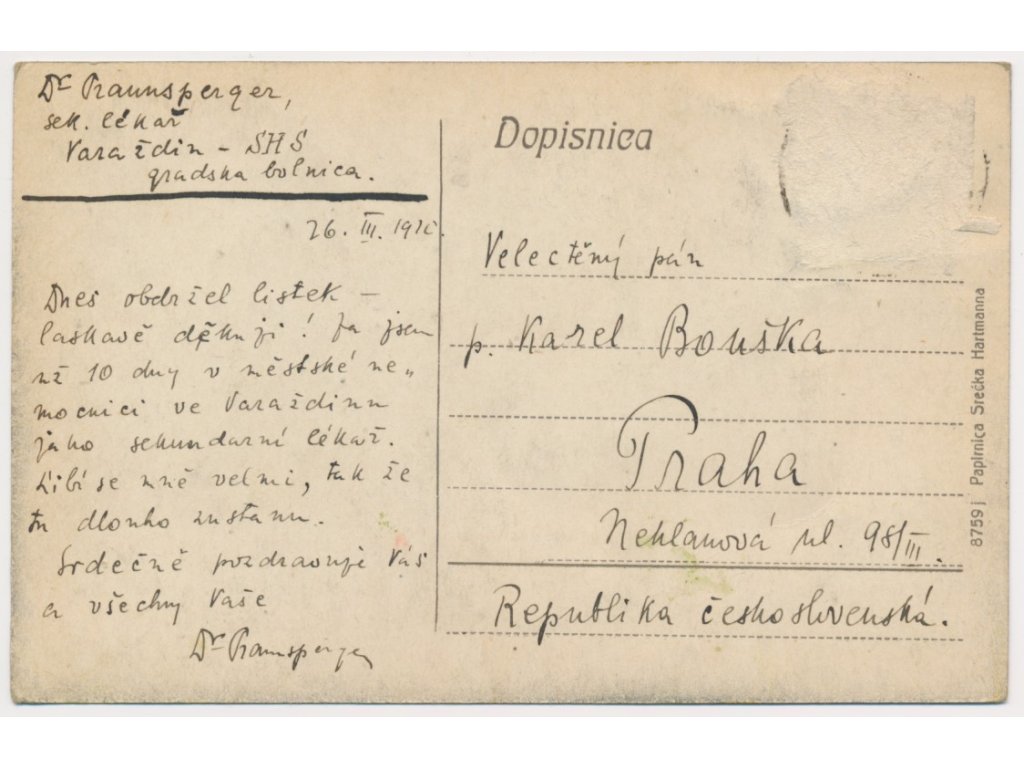 Dr Praunsperger,
sek. lékař
Varaždin - SHS
gradska bolnica.
26. III. 
Dnes obdržel lístek -
laskavě děkuji! Ja jsem
už 10 dny v městské ne„
mocnici ve Varaždinu
jako sekundarní lékař.
Líbí se mně velmi, tak že
tu dlouho zustanu.
Srdečně pozdravuje Váš
a všechny Vaše
Dr Praunsperger
Dopisnica
Velectěný pán
p. Karel Bouška
Praha
Neklanová ul. 98/III.
Republika československá.
8759 j Papirnica Srećka Hartmanna